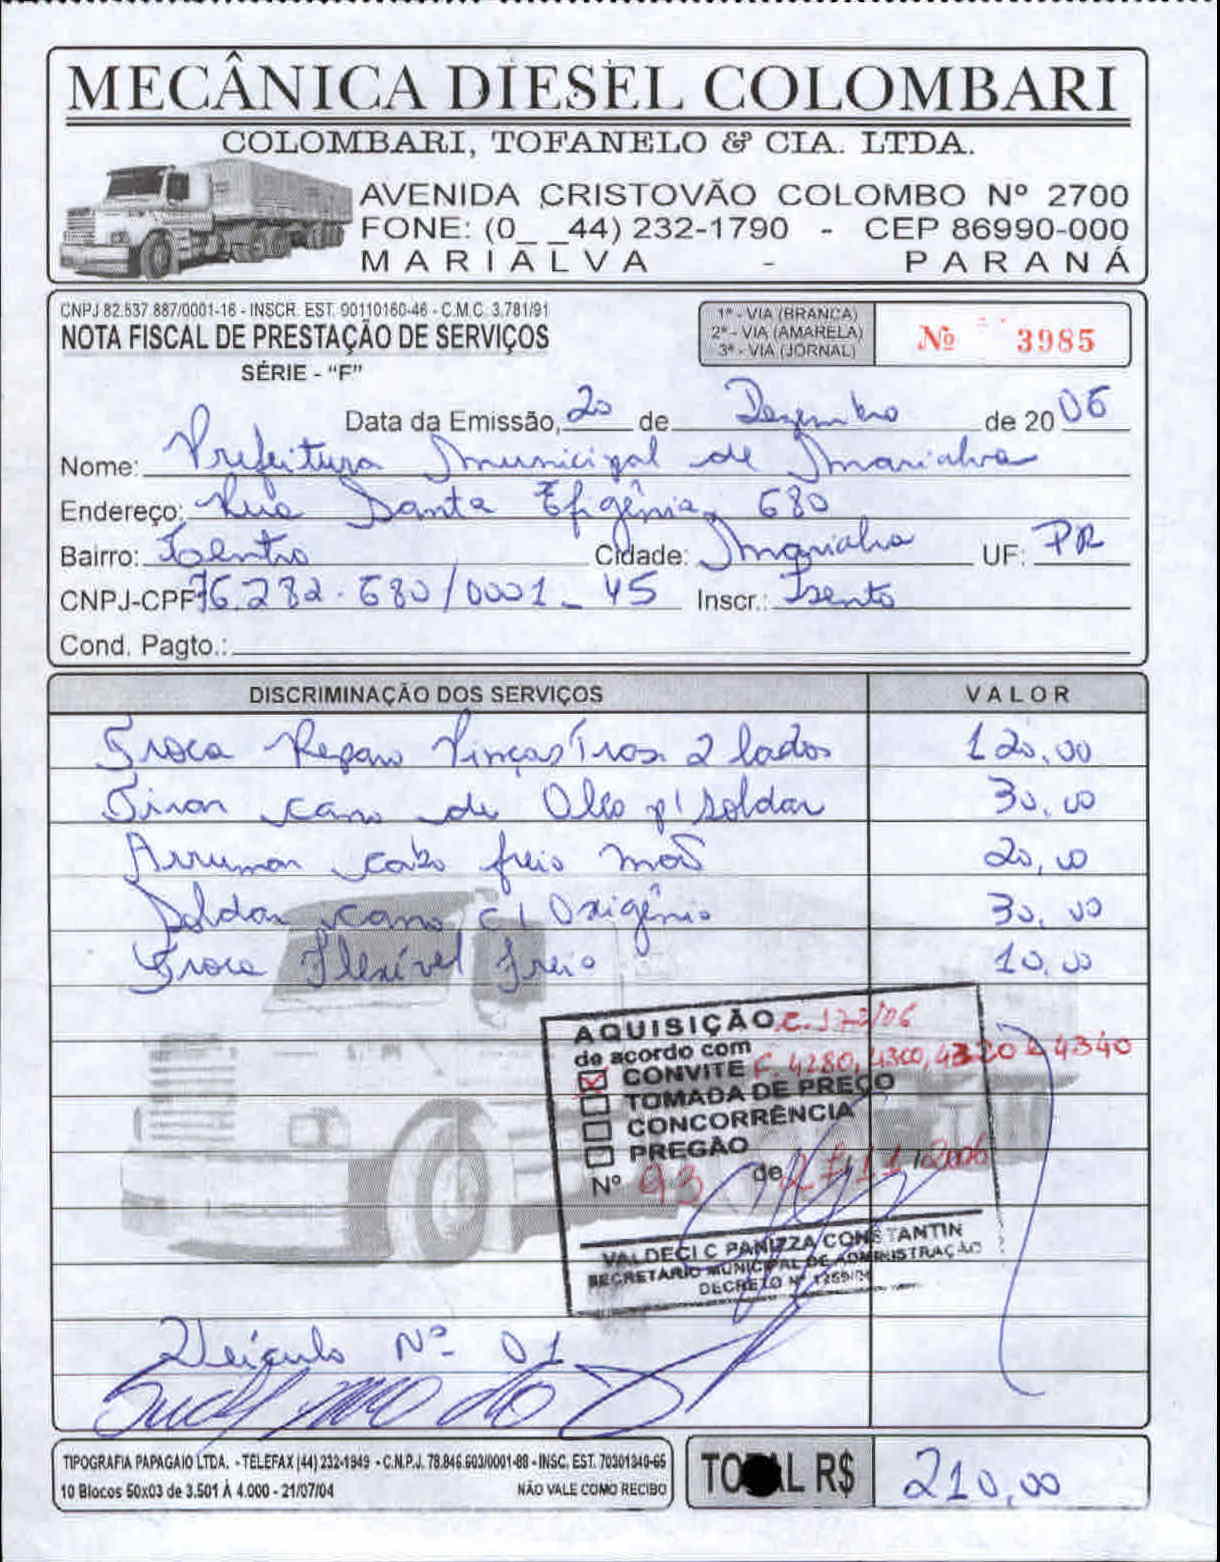 MECÂNICA DIESEL COLOMBARI
COLOMBARI, TOFANELO & CIA. LTDA.
AVENIDA CRISTOVÃO COLOMBO Nº 2700
FONE: (0_ _44) 232-1790 - CEP 86990-000
MARIALVA - PARANÁ
CNPJ 82.537.887/0001-16 - INSCR. EST. 90110160-46 - C.M.C. 3.781/91
NOTA FISCAL DE PRESTAÇÃO DE SERVIÇOS
SÉRIE - “F”
1ª - VIA (BRANCA)
2ª - VIA (AMARELA)
3ª - VIA (JORNAL)
Nº 3985
Data da Emissão, 20 de Dezembro de 2006
Nome: Prefeitura Municipal de Marialva
Endereço: Rua Santa Efigênia, 680
Bairro: Centro Cidade: Marialva UF: PR
CNPJ-CPF 76.282.680/0001-45 Inscr.: Isento
Cond. Pagto.:
DISCRIMINAÇÃO DOS SERVIÇOS VALOR
Troca Reparo Pinças Tras. 2 lados 120,00
Tirar cano de Oleo p/ soldar 30,00
Arrumar cabo freio mão 20,00
Soldar cano c/ Oxigênio 30,00
Troca Flexível Freio 10,00
AQUISIÇÃO
de acordo com
CONVITE F. 4280, 4300, 4320 e 4340
TOMADA DE PREÇO
CONCORRÊNCIA
PREGÃO
Nº 93 de 27/11/2006
VALDECI C PANIZZA CONSTANTIN
SECRETÁRIO MUNICIPAL DE ADMINISTRAÇÃO
DECRETO Nº
Veículo Nº 01
TIPOGRAFIA PAPAGAIO LTDA. - TELEFAX (44) 232-1949 - C.N.P.J. 78.846.603/0001-88 - INSC. EST. 70301340-65
10 Blocos 50x03 de 3.501 À 4.000 - 21/07/04 NÃO VALE COMO RECIBO
TOTAL R$ 210,00